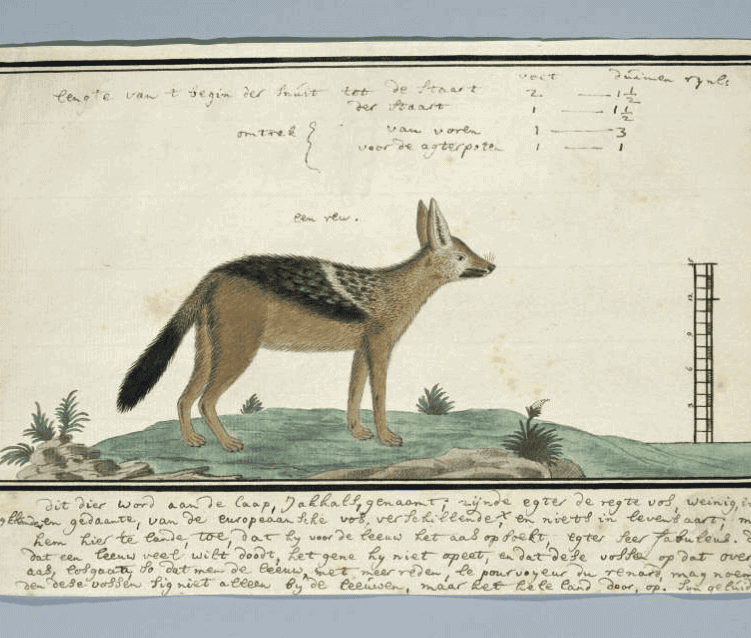 voet duimen rynls
lengte van t begin der Snuit tot de Staart 2. — 1 1/2
der Staart 1 — 1 1/2
omtrek { van voren 1 — 3
voor de agterpoten 1 — 1
een rew.
15
12
9
6
3
dit dier word aan de Caap, Jakhals, genaamt; zijnde egter de regte vos, weinig, in
en gedaante, van de europeaansche vos, verschillende, en niets in levensaart; m
hem hier te lande toe, dat hy voor de leeuw het aas opsoekt, egter seer fabuleus.
dat een leeuw veel wilt doodt, het gene hy niet opeet, en dat dese vossen op dat over
aas, losgaan, so dat men de leeuw, met meer reden, le pourvoyeur du renard, mag noem
den dese vossen sig niet alleen by de leeuwen, maar het hele land door, op. Hun geluid